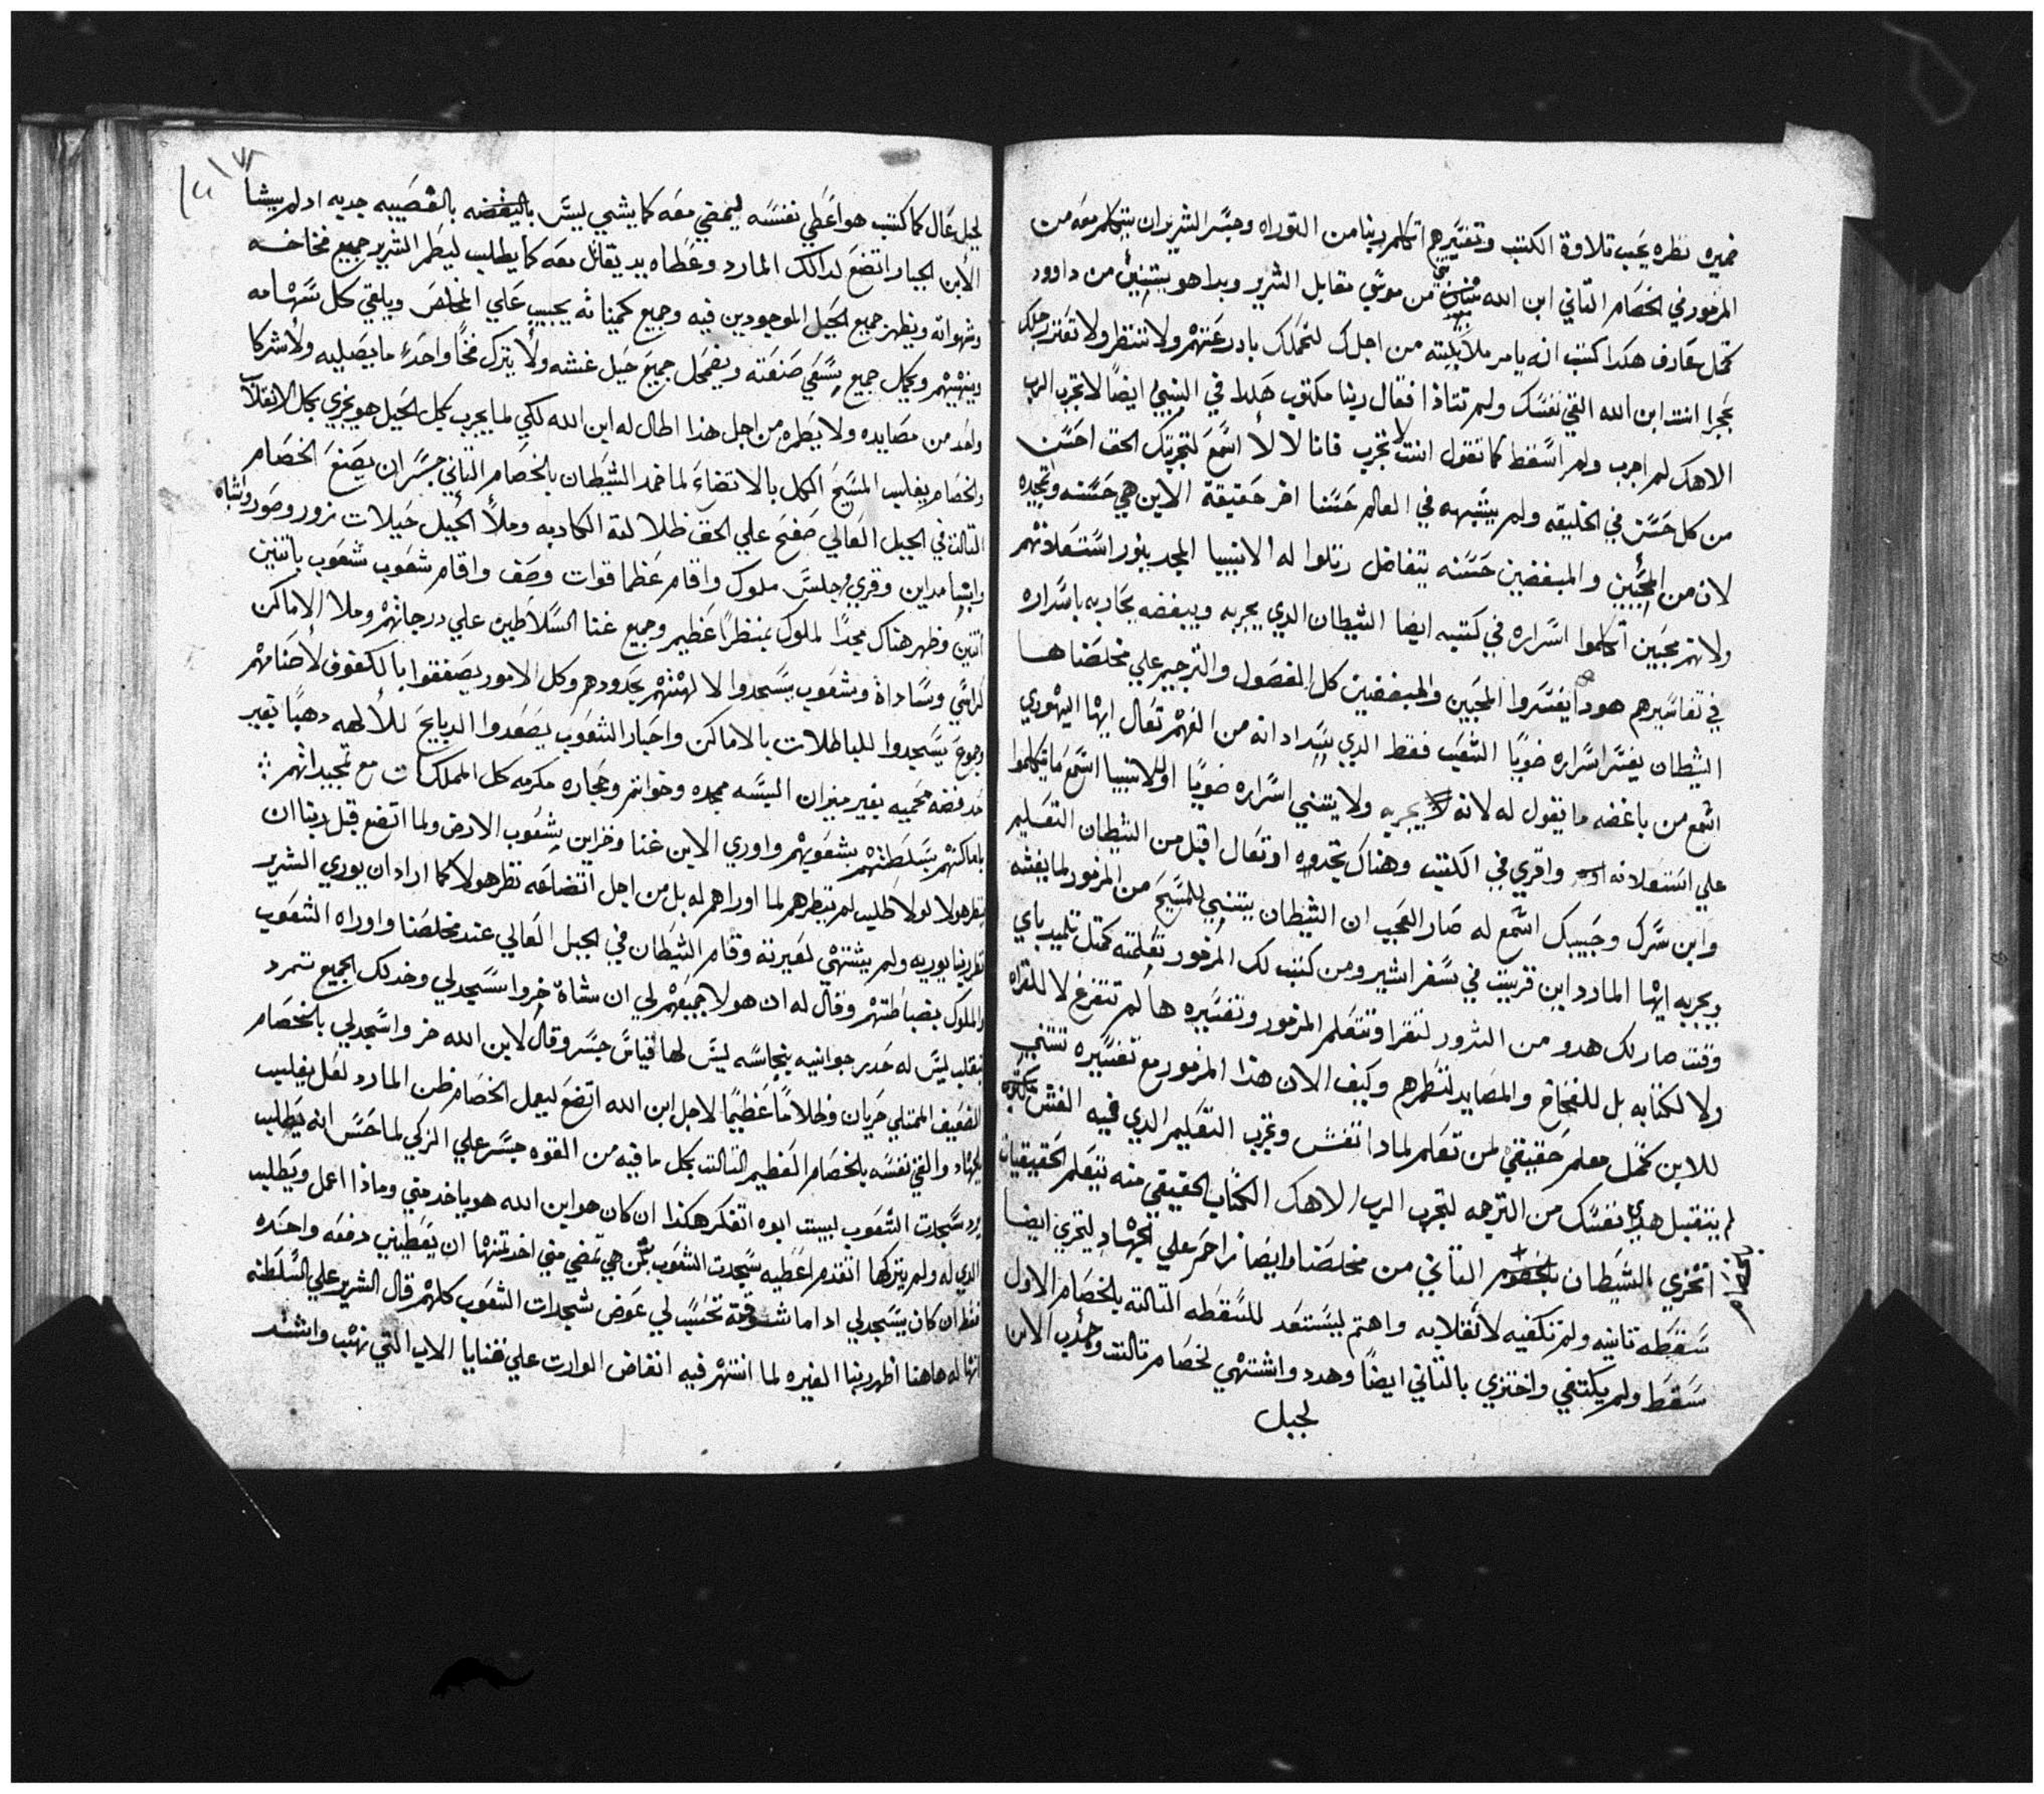 ضميره نظره يجب تلاوة الكتب وتفسيرهم اتكلم ربنا من التوراه وجسر الشرير ان يتكلم معه من
المزمور في الخصام التاني ابن الله من موسى مقابل الشرير وبدا هو يتنبئ من داوود
كمثل عارف هكدا كتب انه يامر ملايكته من اجلك لتحملك بادرعتهم ولا تنتظر ولا تعتر رجلك
بحجرا انت ابن الله القي نفسك ولم تتاذا فقال ربنا مكتوب هكدا في النبي ايضًا لا تجرب الرب
الاهك لم اجرب ولم اسقط كما تقول انت لا تجرب فانا لا لا اسمع لتجربتك الحق احسن
من كل حسن في الخليقه ولم يشبهه في العالم حسنا اخر حقيقة الابن هي حسنه وتمجيده
لان من المحبين والمبغضين حسنه يتفاضل رتلوا له الانبيا المجد بنور استعلانهم
ولانهم محبين اتكلموا اسراره في كتبه ايضا الشيطان الدي يجربه ويبغضه يحاربه باسراره
في تفاسيرهم هودا يفسروا المحبين والمبغضين كل الفصول والتراجيم علي مخلصنا ها
الشيطان يفسر اسراره ضويًا الشعب فقط الدي انه من الفهم تعال ايها اليهودي
اسمع من باغضه ما تقول له لانه يجربه ولا يتني اسراره ضويًا او للانبيا اسمع ما يتكلموا
علي استعلانه واقري في الكتب وهناك تجدوه او تعال اقبل من الشيطان التعليم
وابن سرك وحبيبك اسمع له صار العجيب ان الشيطان يتنبي للمسيح من المزمور لما يغشه
ويجربه ايها المارد اين قريت في سفر اشير ومن كتب لك المزمور تعلمته كمتل تلميد باي
وقت صار لك هدو من الشرور لتقرا وتتعلم المزمور وتفسيره ها لم تتفرغ لا للقراه
ولا لكتابه بل للفخاخ والمصايد لتطمرهم وكيف الان هذا المزمور مع تفسيره تتنبي
للابن كمتل معلم حقيقي لمن تعلم لمادا تغش وتجرب التعليم الدي فيه الغش
لم يتقبل هدي نفسك من الترجمه لتجرب الرب الاهك الكتاب الحقيقي منه نتعلم الحقيقيات
اتخزي الشيطان بالخصام التاني من مخلصنا وايضا زاحم علي الجهاد ليتخزي ايضا
سقطه تانيه ولم تكفيه لانقلابه واهتم ليستعد للسقطه التالته بالخصام الاول
سقط ولم يكتفي واختزي بالتاني ايضًا وهدد واشتهي لخصام تالت وجدب الابن
لجبل
لجبل عال كما كتب هو اعطي نفسه ليمضي معه كما يشي ليس بالغصيبه جدبه اد لم يشا
الابن الجبار اتضع لدالك المارد وعطاه يد يقاتل معه كما يطلب ليطمر الشرير جميع فخاخه
وشهواته ويظهر جميع الحيل الموجودين فيه وجميع كميناته يجيب علي المخلص ويلقي كل سهامه
وينهيهم ويكمل جميع صنعته ويضمحل جميع حيل غشه ولا يترك فخًا واحدًا ما يصليه ولا شركا
واحد من مصايده ولا يطمره من اجل هدا اطال له ابن الله لكي لما يجرب بكل الحيل هو يخزي بكل الانقلاب
والخصام يغلب المسيح الكل بالاتضاع لما خمد الشيطان بالخصام التاني جسر ان يصنع الخصام
التالت في الجبل العالي صفح علي الحق ظلالة الكادبه وملأ الجبل خيلات زور وصور واشباه
وانشا مداين وقري وجلس ملوك واقام عظما قوات وصف واقام شعوب شعوب باتنين
اتنين وظهر هناك مجدًا لملوك بمنظرًا عظيم وجميع غنا السلاطين علي درجاتهم وملا الاماكن
كراسي وسادة وشعوب يسجدوا لالهتهم بحدودهم وكل الامور يصفقوا بالكفوف لاصنامهم
وجموع يسجدوا للباطلات بالاماكن واحبار الشعوب يصعدوا الدبايح للألهه دهبًا بغير
حد فضه محميه بغير ميزان البسه ممجده وخواتم وحجاره مكرمه كل المملكات مع تمجيداتهم
باماكنهم بسلطتهم بشعوبهم واوري الابن غنا وخزاين شعوب الارض ولما اتضع قبل ربنا ان
ينظر هولا لولا طلب لم ينظرهم لما اوراهم له بل من اجل اتضاعه نظر هولا كما اراد ان يوري الشرير
نظر ربنا يوريه ولم يشتهي لغيرته وقام الشيطان في الجبل العالي عند مخلصنا واوراه الشعوب
والملوك بضباطتهم وقال له ان هولا جميعهم لي ان سشاة خروا سجد لي وخدلك الجميع تمرد
بقلب ليس له حد بر جوانيه نجاسه ليس لها قياس جسر وقال لابن الله خر واسجد لي بالخصام
الضعيف الممتلي حريان وظلامًا عظيمًا لاجل ابن الله اتضع ليعمل الخصام ظن المارد لعل يغلب
بالجهاد والقي نفسه بالخصام العظيم التالت بكل ما فيه من القوه جسر علي الزكي لما حسّ انه يطلب
يرد سجدات الشعوب لبيت ابوه اتفكر هكدا ان كان هو ابن الله هو ياخد مني وماذا اعمل ويطلب
الدي له ولم يتركها اتقدم اعطيه سجدت الشعوب هي تمضي مني اخدتها ان يعطيني دفعه واحده
فقط ان كان يسجد لي اد اما تحسب لي عوض سجدات الشعوب كلهم قال الشرير علي السلطه
انها له هاهنا اظهر ربنا الغيره لما انتهر فيه انغاض الوارت علي غنايا الاب التي نهب